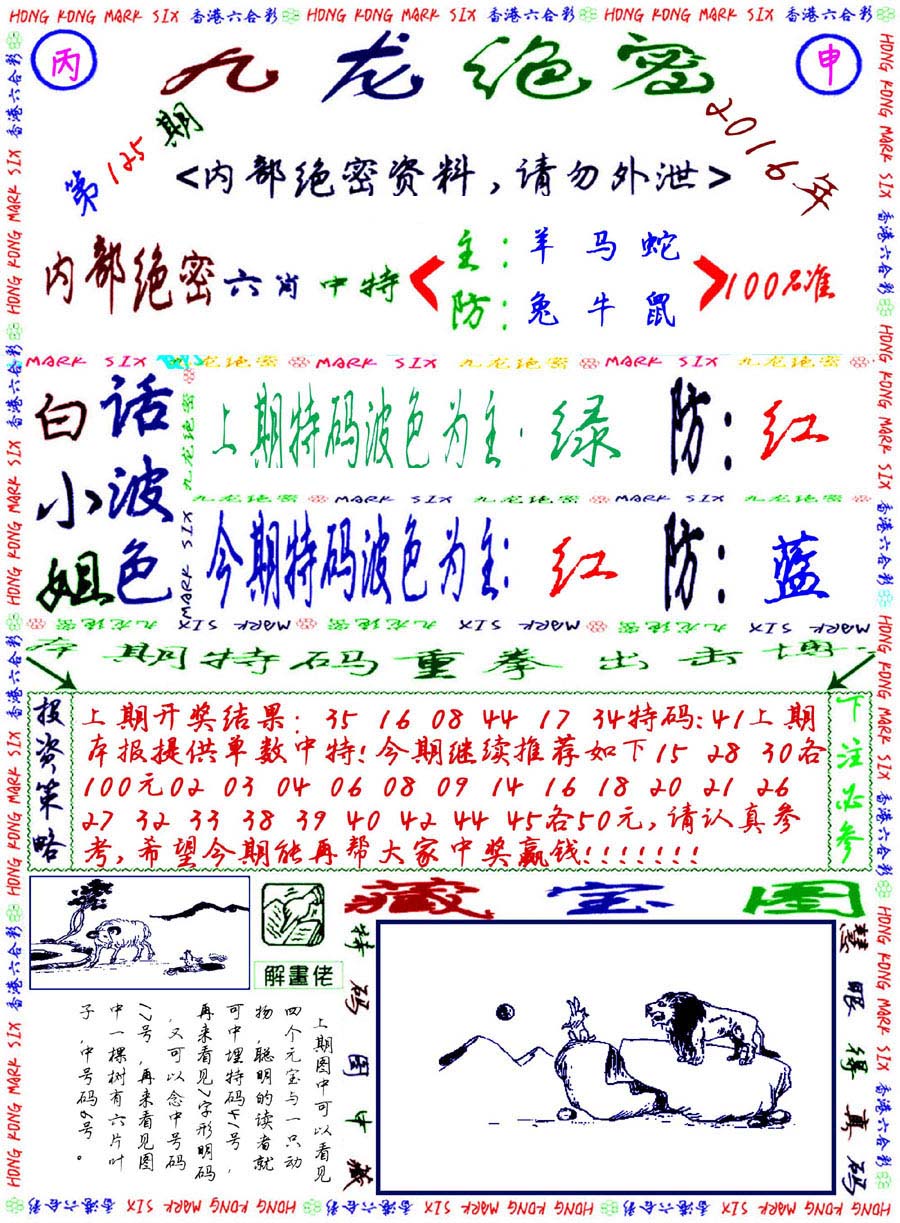 HONG KONG MARK SIX 香港六合彩 HONG KONG MARK SIX 香港六合彩 HONG KONG MARK SIX 香港六合彩
丙
九龙绝密
申
第125期
2016年
<内部绝密资料,请勿外泄>
内部绝密六肖中特
主:羊马蛇
防:兔牛鼠
100%准
MARK SIX 九龙绝密 MARK SIX 九龙绝密 MARK SIX 九龙绝密
白小姐
话波色
上期特码波色为主:绿 防:红
九龙绝密 MARK SIX 九龙绝密 MARK SIX 九龙绝密
今期特码波色为主:红 防:蓝
MARK SIX 九龙绝密 MARK SIX 九龙绝密 MARK SIX 九龙绝密
本期特码重拳出击博
投资策略
上期开奖结果:35 16 08 44 17 34特码:41上期
本报提供单数中特!今期继续推荐如下15 28 30各
100元02 03 04 06 08 09 14 16 18 20 21 26
27 32 33 38 39 40 42 44 45各50元,请认真参
考,希望今期能再帮大家中奖赢钱!!!!!!!
下注必参
藏宝图
解畫佬
上期图中可以看见
四个元宝与一只动
物,聪明的读者就
可中埋特码41号,
再来看见7字形明码
,又可以念中号码
17号,再来看见图
中一棵树有六片叶
子,中号码6号。
特码图中藏
慧眼得真码
HONG KONG MARK SIX 香港六合彩 HONG KONG MARK SIX 香港六合彩 HONG KONG MARK SIX 香港六合彩